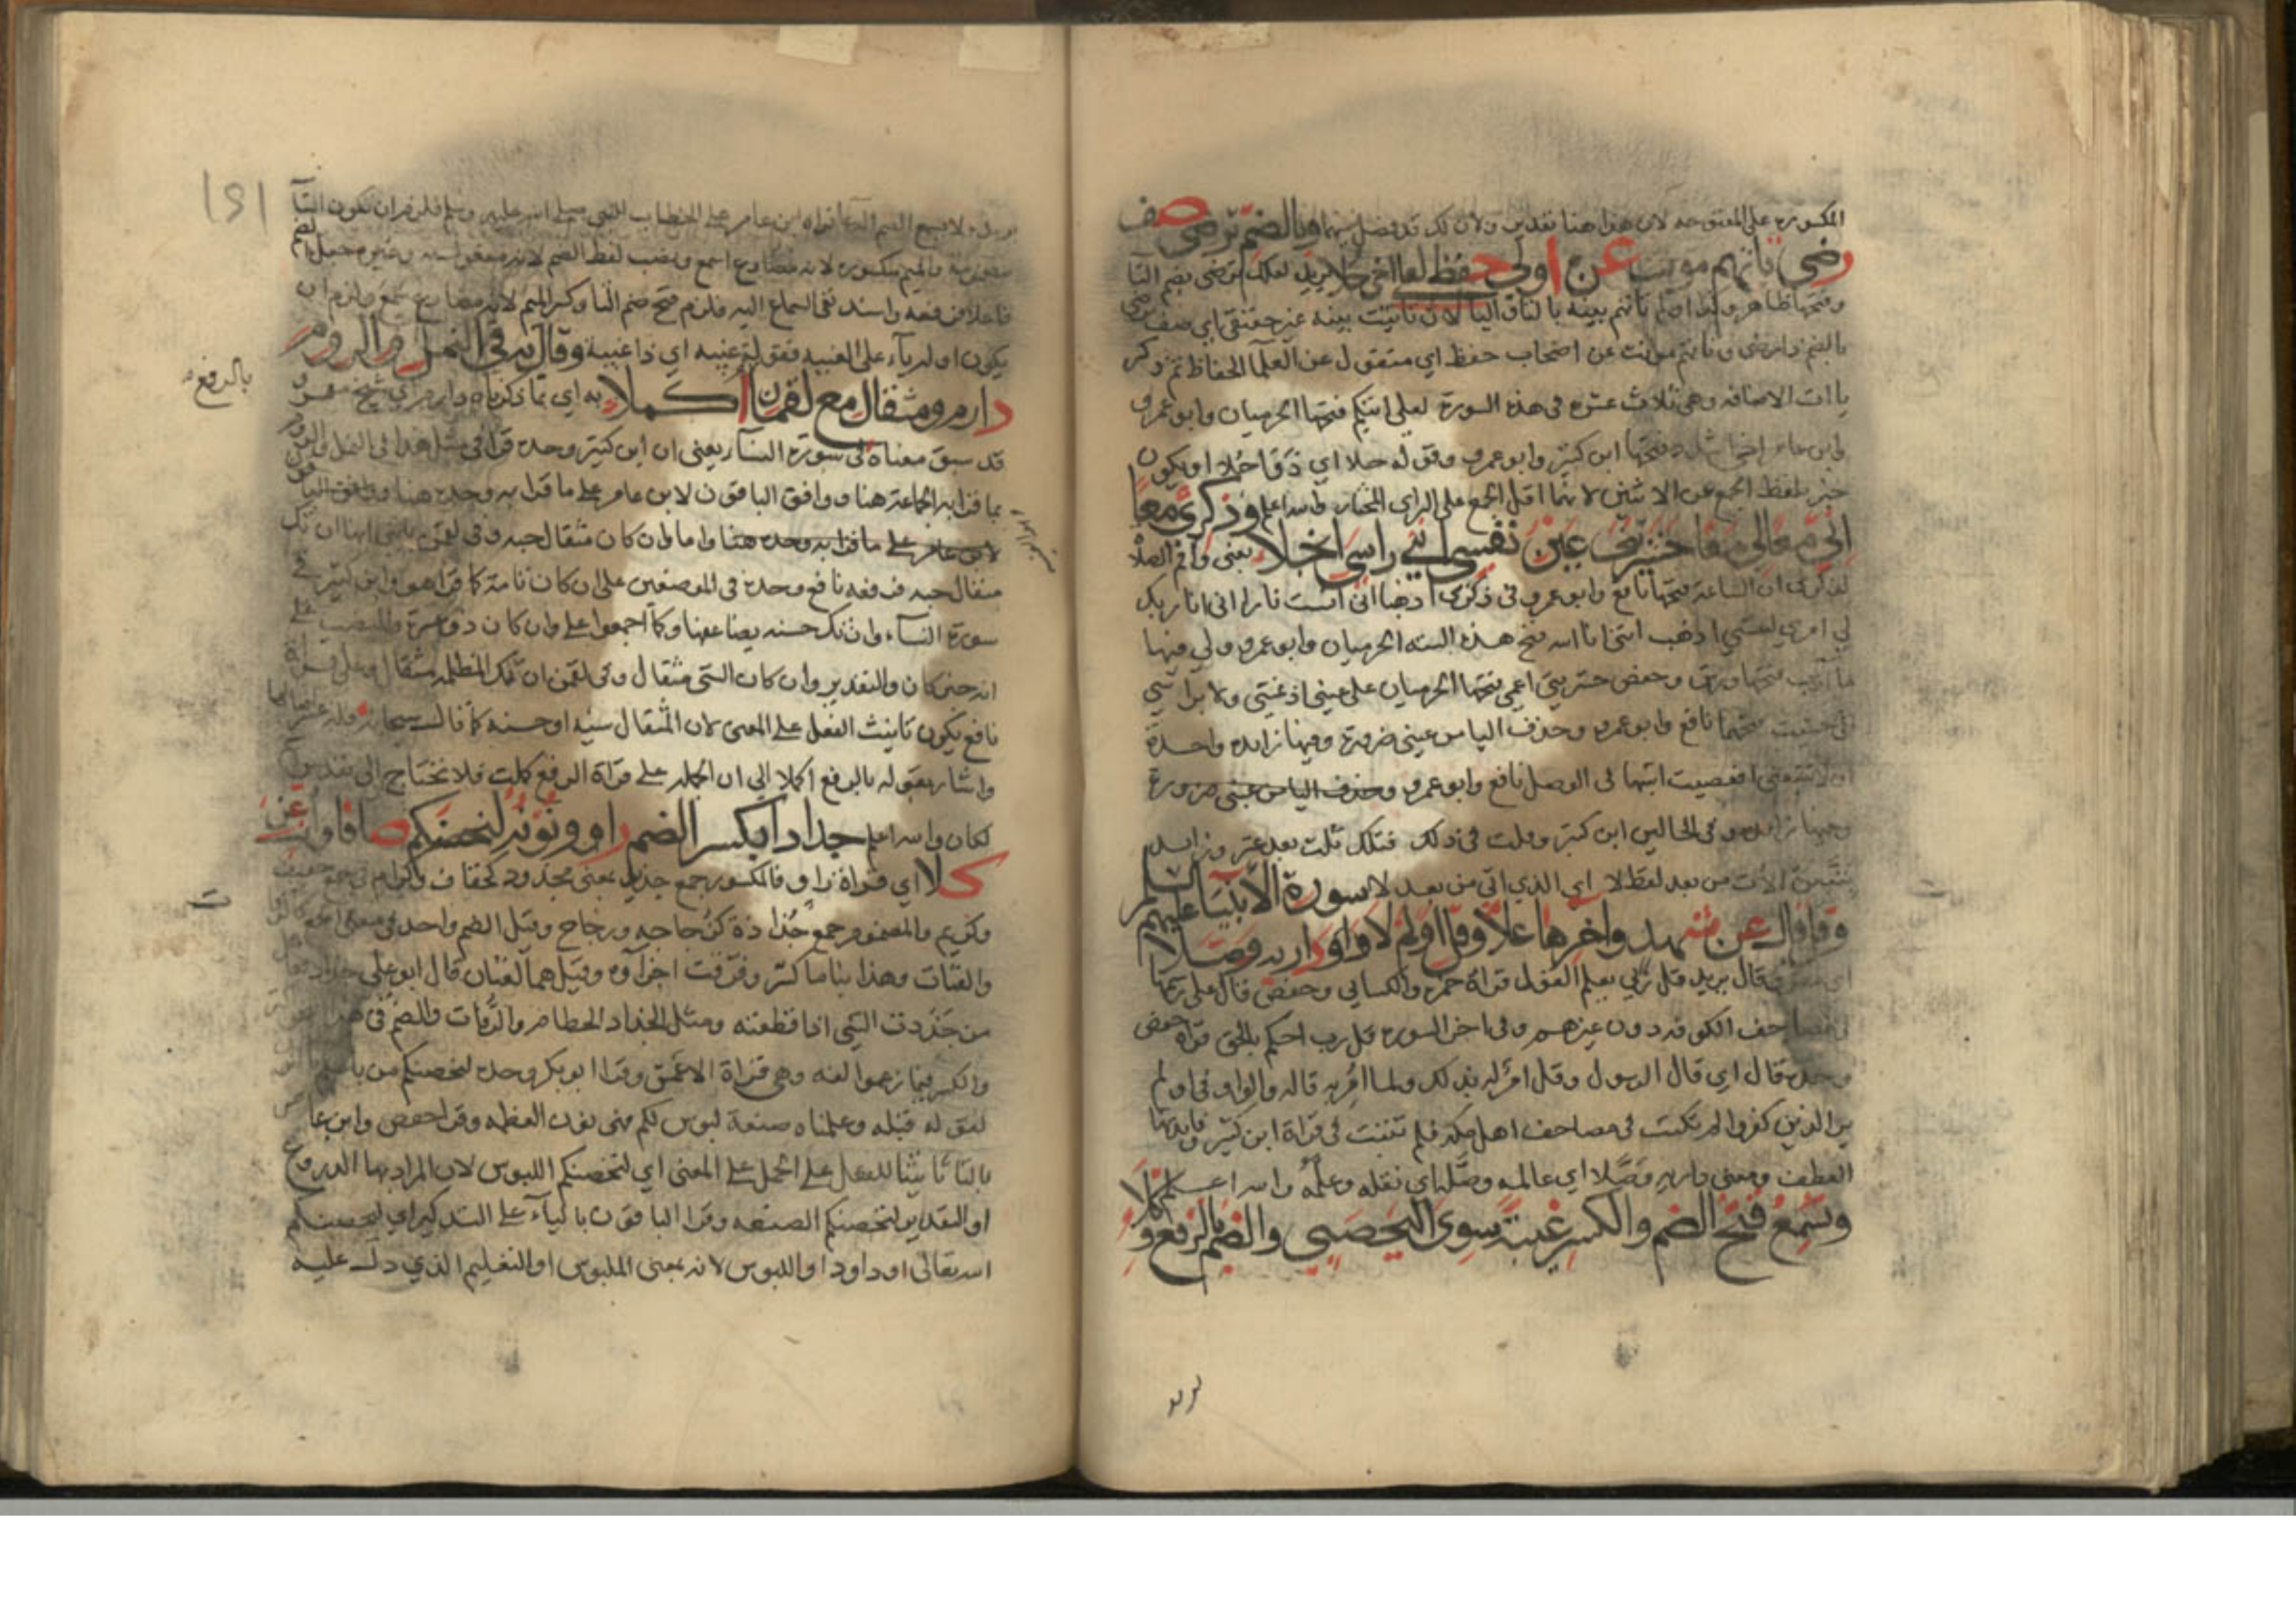 المكسورة على المفتوحة لان هذا هنا بعد ولان لك قد فصل بينهما وبالضم ترضى صف
رضى تأتهم مونث عن اولى حفظ لعلى اخى حلا يريد لعلك ترضى بضم التا
وفتحها ظاهر وكذا اولم تأتهم بينة بالتا واليا لان تانيث بينة غير حقيقي اي صف
بالضم ذا رضى وتاتهم مونث عن اصحاب حفظ اي منقول عن العلما الحفاظ ثم ذكر
يا ات الاضافه وهى ثلاث عشرة فى هذه السورة لعلى اتيكم فتحها الحرميان وابو عمرو
وابن عامر اخى اشدد فتحها ابن كثير وابو عمرو وقوله حلا اي ذو حلا او يكون
خبر بلفظ الجمع عن الاثنين لانهما اقل الجمع على الراي المختار والله اعلم وذكري معا
انى معا لى معا حشرتنى عين نفسى اننى راسى انجلا يعنى واقم الصلاة
لذكرى ان الساعة فتحها نافع وابو عمرو فى ذكرى اذهبا انى انست نارا انى انا ربك
لي امري لنفسي اذهب اننى انا الله فتح هذه الستة الحرميان وابو عمرو ولي فيها
مآرب فتحها ورش وحفص حشرتنى اعمى فتحها الحرميان على عينى اذ تمشي ولا براسي
انى خشيت فتحهما نافع وابو عمرو وحذف اليا من عينى ضرورة وفيها زائدة واحدة
ان لا تتبعنى افعصيت اثبتها فى الوصل نافع وابو عمرو وحذف اليا من عينى ضرورة
وفى الحالين ابن كثير وقلت فى ذلك فتلك ثلث بعد عشر وزايد
تتبعن الات من بعد لفظ لا اي الذي اتى من بعد لا سورة الأنبياء عليهم السلم
وقل قال عن شهد واخرها علا وقل اولم لا واو داريه وصلا
فقال يريد قل ربي يعلم القول قراة حمزة والكسايي وحفص قال على
مصاحف الكوفه دون غيرهم وفى اخر السورة قل رب احكم بالحق قراة حفص
وحده قال اي قال الرسول وقل امر له بذلك ولما امر به قاله والواو فى اولم
ير الذين كفروا لم تكتب فى مصاحف اهل مكة فلم تثبت فى قراة ابن كثير
العطف ومعنى داريه وصلا اي عالمه وصله اي نقله وعلمه والله اعلم
وتسمع فتح الضم والكسر غيبة سوى اليحصبي والضم بالرفع وكلا
ولا يسمع الصم الدعا قراه ابن عامر على الخطاب للنبي صلى الله عليه وسلم فلزم ان تكون التا
مضمومة والميم مكسورة لانه مضارع اسمع ونصب لفظ الصم لانه مفعول به وغيره جعل الصم
فاعلا فرفعه واسند نفى السماع اليه فلزم فتح ضم التا وكسر الميم لانه مضارع سمع ولزم ان
يكون اوله يآء على الغيبة فقوله غيبة اي ذا غيبة وقال به فى النمل والروم
دارم ومثقال مع لقمان اكملا به اي بما ذكرناه دارم اي شيخ
بالرفع
قد سبق معناه فى سورة النسآ يعنى ان ابن كثير وحده قرا فى مثل هذا فى النمل والروم
بما قرا به الجماعة هنا ووافق الباقون لابن عامر على ما قرا به وحده هنا
لابن عامر على ما قرا به وحده هنا واما وان كان مثقال حبة وفى لقمن يابنى انها ان تك
مثقال حبة فرفعه نافع وحده فى الموضعين على ان كان تامة كما قرا هو وابن كثير فى
سورة النسآء وان تك حسنة يضاعفها وكما اجمعوا على وان كان ذو عسرة والنصب على
انه خبر كان والتقدير وان كان الشى مثقال وفى لقمن ان تك المظلمة مثقال وعلى قراة
نافع يكون تانيث الفعل على المعنى لان المثقال سيئة او حسنة كما قال سبحانه فله عشر امثالها
واشار بقوله بالرفع اكملا الى ان الجملة على قراة الرفع كملت فلا تحتاج الى تقدير
لكان والله اعلم جذاذا بكسر الضم راو ونونه لتحصنكم صافا وانث عن
كلا اي قراة راو فالمكسور جمع جذيذ بمعنى مجذوذ كخفاف وكرام فى جمع خفيف
وكريم والمضموم جمع جذاذة كزجاجة وزجاج وقيل الضم واحد فى معنى
والفتات وهذا بنا ما كسر وفرقت اجزآوه وقيل هما لغتان قال ابو على جذاذ
من جذذت الشى اذا قطعته ومثل الجذاذ الحطام والرفات والضم فى هذا
والكسر فيما زعموا لغة وهى قراة الاعمش وقرا ابو بكر وحده لنحصنكم من باسكم
لقوله قبله وعلمناه صنعة لبوس لكم فهى نون العظمة وقرا حفص وابن عامر
بالتا تانيثا للفعل على الحمل على المعنى اي لتحصنكم اللبوس لان المراد بها الدروع
او التقدير لتحصنكم الصنعة وقرا الباقون باليآء على التذكير اي ليحصنكم
الله تعالى او داود او اللبوس لانه بمعنى الملبوس او التعليم الذي دل عليه